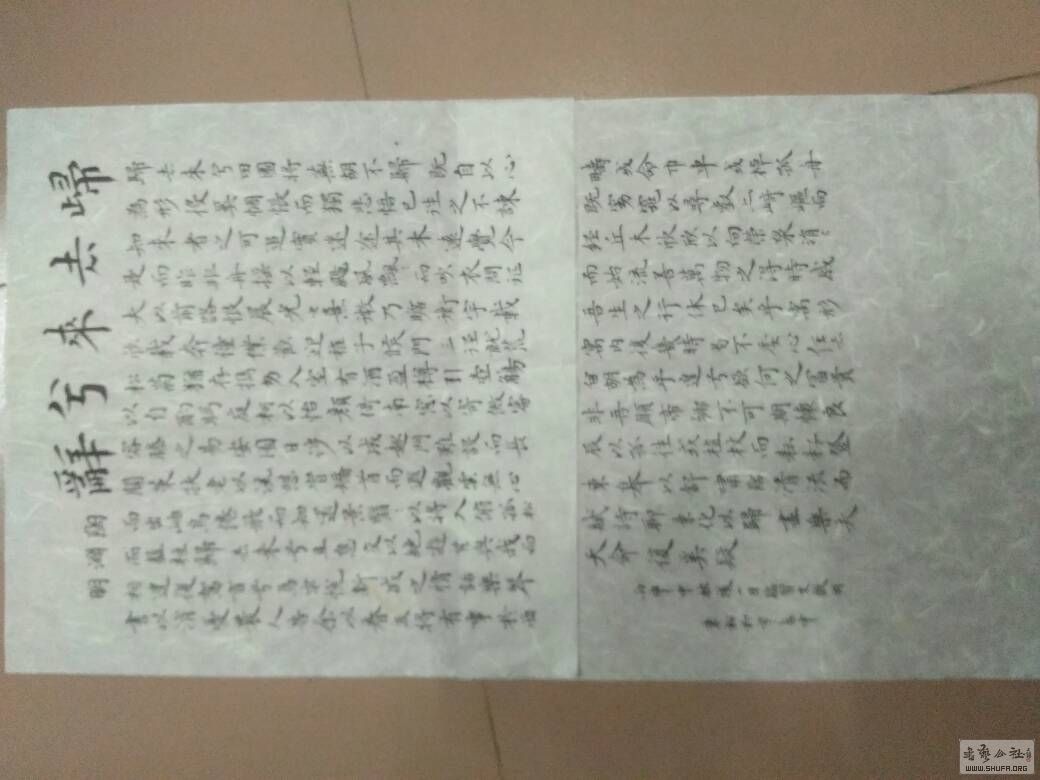 歸去來兮辭
陶淵明
歸去來兮田園将蕪胡不歸既自以心
為形役奚惆悵而獨悲悟已往之不諫
知來者之可追實迷途其未遠覺今
是而昨非舟搖以輕颺風飄〻而吹衣問征
夫以前路恨晨光之熹微乃瞻衡宇載
欣載奔僮僕歡迎稚子候門三徑就荒
松菊猶存攜幼入室有酒盈樽引壺觴
以自酌眄庭柯以怡顏倚南窓以寄傲審
容膝之易安園日涉以成趣門雖設而長
關策扶老以流憩時矯首而遐觀雲無心
而出岫鳥倦飛而知還景翳以將入撫孤松
而盤桓歸去來兮請息交以絕遊世與我而
相違復駕言兮焉求悅親戚之情話樂琴
書以消憂農人告余以春及將有事於西
疇或命巾車或棹孤舟
既窈窕以尋壑亦崎嶇而
經丘木欣欣以向榮泉涓〻
而始流善萬物之得時感
吾生之行休已矣乎寓形
宇内復幾時曷不委心任去
留胡為乎遑兮欲何之富貴
非吾願帝鄉不可期懷良
辰以孤往或植杖而耘耔登
東皋以舒嘯臨清流而
賦詩聊乘化以歸盡樂夫
天命復奚疑
書藝公社
WWW.SHUFA.ORG